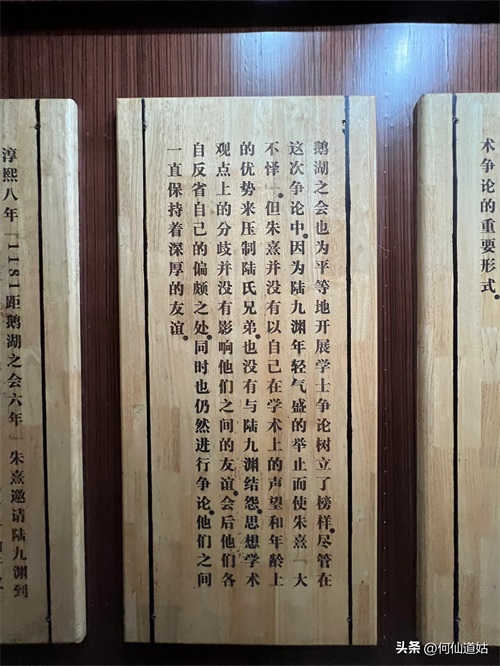 术争论的重要形式。
鹅湖之会也为平等地开展学士争论树立了榜样。尽管在
这次争论中。因为陆九渊年轻气盛的举止而使朱熹「大
不怿」。但朱熹并没有以自己在学术上的声望和年龄上
的优势来压制陆氏兄弟。也没有与陆九渊结怨。思想学术
观点上的分歧并没有影响他们之间的友谊。会后他们各
自反省自己的偏颇之处。同时也仍然进行争论。他们之间
一直保持着深厚的友谊。
淳熙八年「1181距鹅湖之会六年」朱熹邀请陆九渊到
头条 @何仙道姑